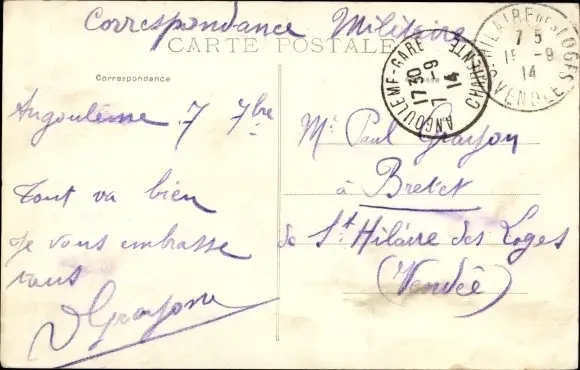 Correspondance Militaire
CARTE POSTALE
Correspondance
Angoulême 7 7bre
Tout va bien
Je vous embrasse
tous
ANGOULEME-GARE
17 30
7-9
14
CHARENTE
ST HILAIRE DES LOGES
7 5
9
14
VENDEE
Mr Paul
à Brelet
de St Hilaire des Loges
(Vendée)